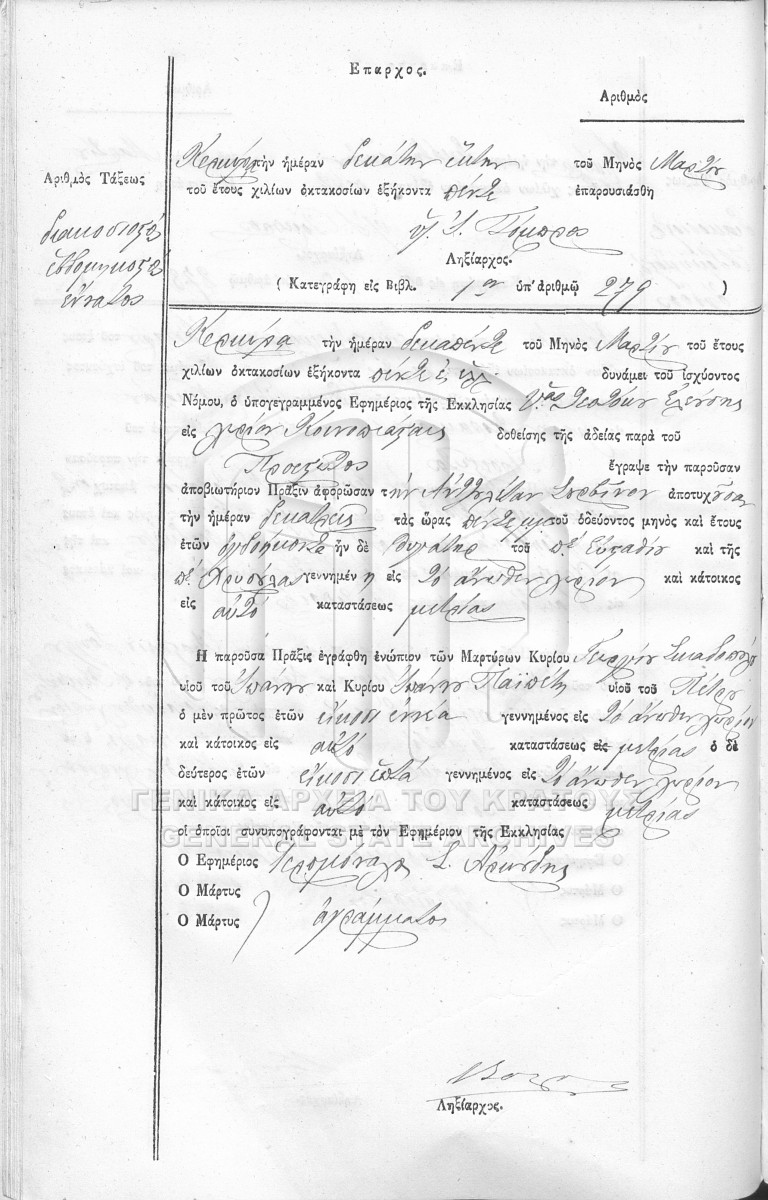 Επαρχος.
Αριθμὸς
Αριθμὸς Τάξεως
διακοσιοστὸς
ἑβδομηκοστὸς
ἔννατος
Κερκύρα τὴν ἡμέραν δεκάτην ἕκτην τοῦ Μηνὸς Μαρτίου
τοῦ ἔτους χιλίων ὀκτακοσίων ἑξήκοντα πέντε ἐπαρουσιάσθη
Ληξίαρχος.
( Κατεγράφη εἰς Βιβλ. 1ον ὑπ' ἀριθμῷ 279 )
Κερκύρα τὴν ἡμέραν δεκαπέντε τοῦ Μηνὸς Μαρτίου τοῦ ἔτους
χιλίων ὀκτακοσίων ἑξήκοντα πέντε δυνάμει τοῦ ἰσχύοντος
Νόμου, ὁ ὑπογεγραμμένος Εφημέριος τῆς Εκκλησίας
εἰς χωρίον Κοινοπιαστες δοθείσης τῆς ἀδείας παρὰ τοῦ
Προεστῶτος ἔγραψε τὴν παροῦσαν
ἀποβιωτήριον Πρᾶξιν ἀφορῶσαν τὴν ἀποτυχοῦσαν
τὴν ἡμέραν δεκατρεῖς τὰς ὥρας πέντε τοῦ ὁδεύοντος μηνὸς καὶ ἔτους
ἐτῶν ὀγδοήκοντα ἦν δὲ θυγάτηρ τοῦ π.ε Εὐσταθίου καὶ τῆς
π.ε Χρυσούλας γεννημένη εἰς τὸ ἄνωθεν χωρίον καὶ κάτοικος
εἰς αὐτό καταστάσεως μετρίας
Η παροῦσα Πρᾶξις ἐγράφθη ἐνώπιον τῶν Μαρτύρων Κυρίου Γεωργίου
υἱοῦ τοῦ Ἰωάννου καὶ Κυρίου Ἰωάννου Παϊπέτη υἱοῦ τοῦ Πέτρου
ὁ μὲν πρῶτος ἐτῶν εἴκοσι ἐννέα γεννημένος εἰς τὸ ἄνωθεν χωρίον
καὶ κάτοικος εἰς αὐτό καταστάσεως εἰς μετρίας ὁ δὲ
δεύτερος ἐτῶν εἴκοσι ἑπτά γεννημένος εἰς τὸ ἄνωθεν χωρίον
καὶ κάτοικος εἰς αὐτό καταστάσεως μετρίας
ΓΕΝΙΚΑ ΑΡΧΕΙΑ ΤΟΥ ΚΡΑΤΟΥΣ
GENERAL STATE ARCHIVES
οἱ ὁποῖοι συνυπογράφονται μὲ τὸν Εφημέριον τῆς Εκκλησίας
Ο Εφημέριος Ἱερομόναχος Σ.
Ο Μάρτυς
Ο Μάρτυς ἀγράμματοι
Ληξίαρχος.